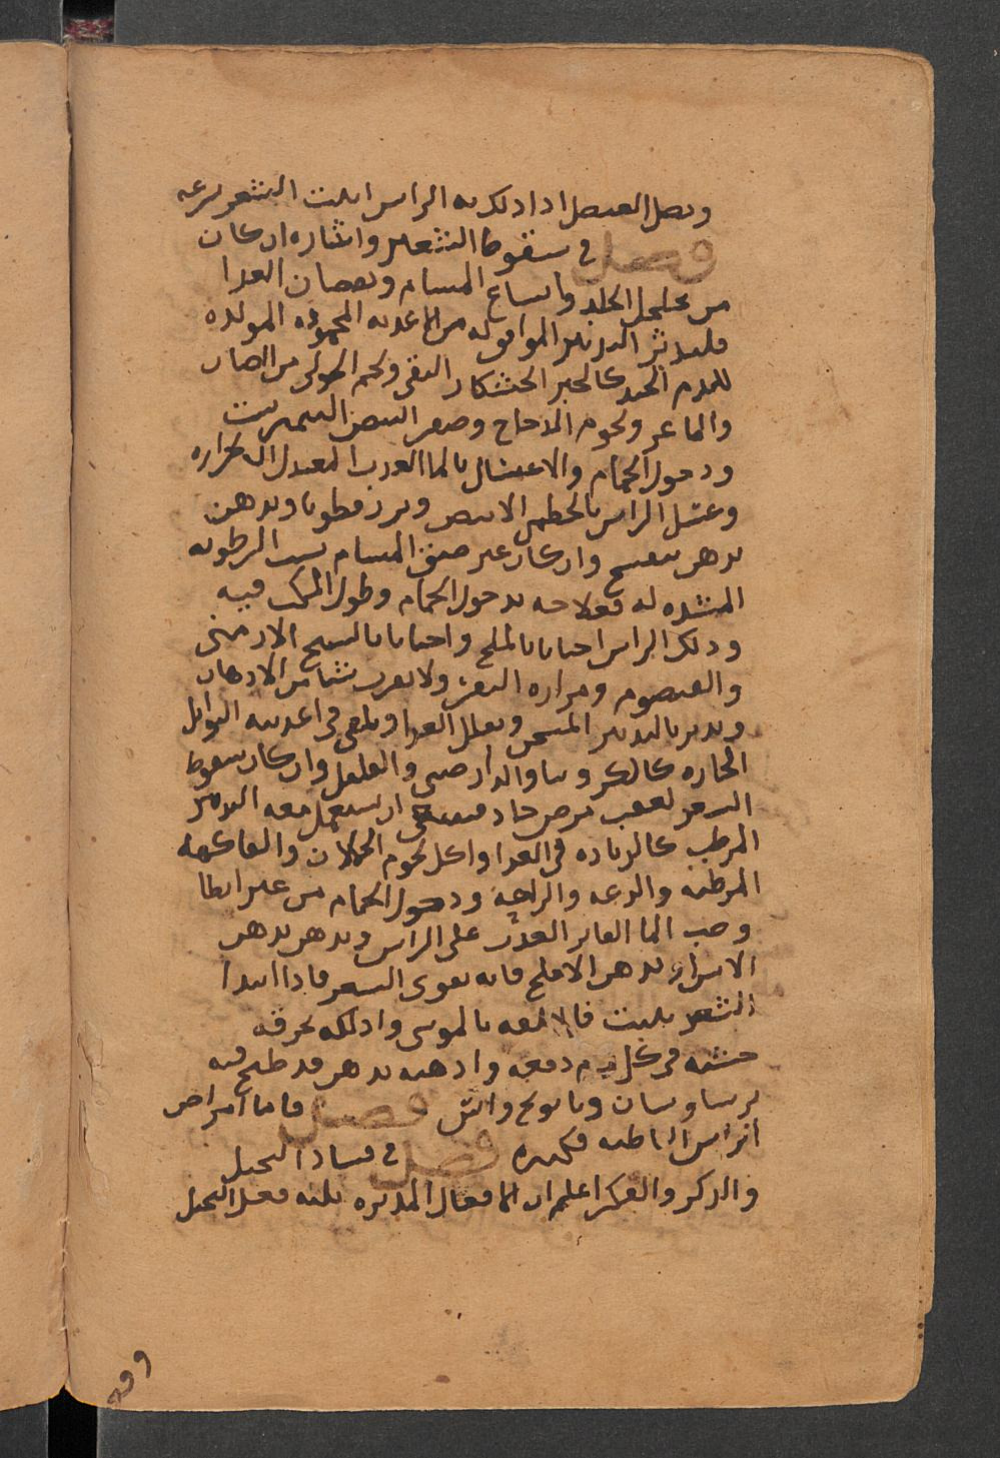 وبصل العنصل اذا دلك به الراس انبت الشعر بسرعه
فصل في سقوط الشعر وانتثاره ان كان
من تخلخل الجلد واتساع المسام ونقصان الغدا
فليدثر التدبير الموافق له من الاغديه المحموده المولده
للدم الجيد كالخبز الخشكار النقي ولحم الحولي من الضان
والماعز ولحوم الدجاج وصفر البيض النيمبرشت
ودخول الحمام والاغتسال بالما العدب المعتدل الحراره
وغسل الراس بالخطمي الابيض وبزر قطونا ويدهن
بدهن بنفسج وان كان عن ضيق المسام بسبب الرطوبه
المسدده له فعلاجه بدخول الحمام وطول المكث فيه
ودلك الراس احيانا بالملح واحيانا بالشيح الارمني
والقيصوم ومراره البقر ولا يقرب شيا من الادهان
ويدبر بالتدبير المسخن ويقلل الغدا ويلقى في اغديته التوابل
الحاره كالكرويا والدارصيني والفلفل وان كان سقوط
الشعر لعقب مرض حاد فينبغي ان يستعمل معه التدبير
المرطب كالزياده في الغدا واكل لحوم الحملان والفاكهه
المرطبه والدعه والراحه ودخول الحمام من غير ابطا
وصب الما الفاتر العدب على الراس ويدهن بدهن
الاس او بدهن الاملج فانه يقوي الشعر فاذا ابتدا
الشعر ينبت فاحلقه بالموسى وادلكه بخرقه
خشنه في كل يوم دفعه وادهنه بدهن قد طبخ فيه
برسياوشان وبابونج واس فصل فاما امراض
الراس الباطنه فكثيره فصل في فساد التخيل
والدكر والفكر اعلم ان الافعال المدبره ثلثه فعل التخيل